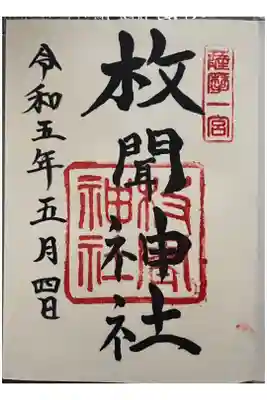 薩摩一宮
枚聞神社
枚聞神社
令和五年五月四日